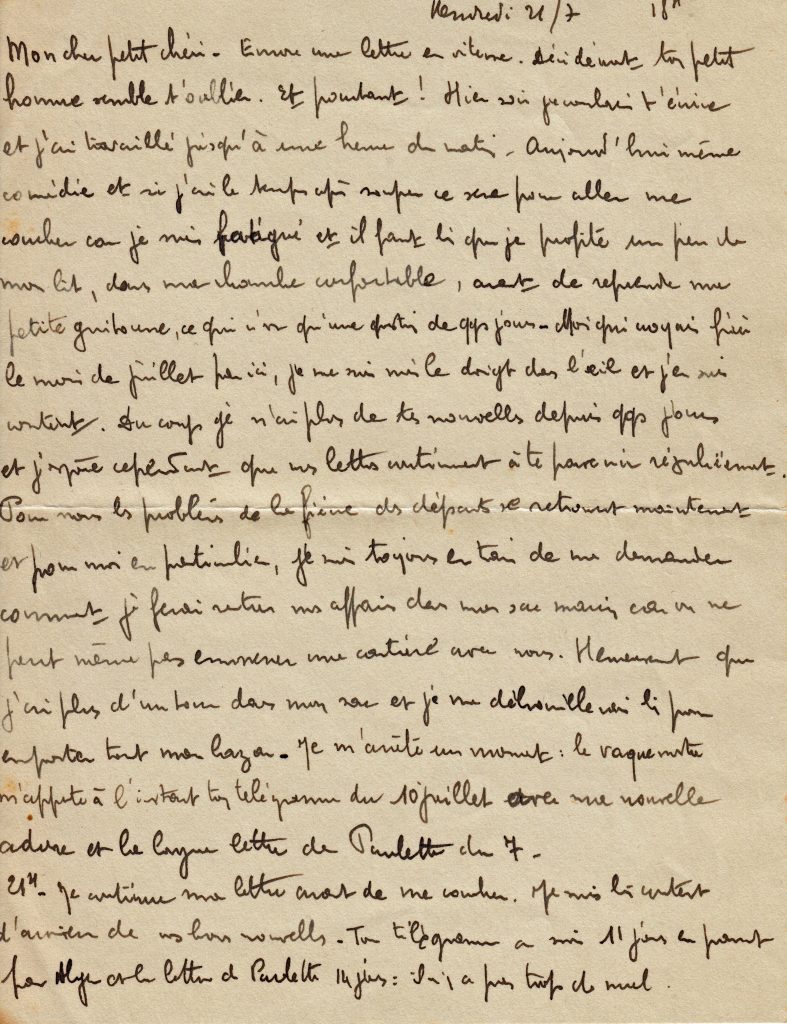 Vendredi 21/7 18h
Mon cher petit chéri - Encore une lettre en vitesse. Décidément ton petit
homme semble t'oublier. Et pourtant ! Hier soir je voulais t'écrire
et j'ai travaillé jusqu'à une heure du matin - Aujourd'hui même
comédie et si j'ai le temps après souper ce sera pour aller me
coucher car je suis fatigué et il faut que je profite un peu de
mon lit, dans ma chambre confortable, avant de reprendre ma
petite guitoune, ce qui n'est qu'une question de qqs jours - Moi qui voyais finir
le mois de juillet par ici, je me suis mis le doigt dans l'œil et j'en suis
content. Du coup je n'ai plus de tes nouvelles depuis qqs jours
et j'espère cependant que mes lettres continuent à te parvenir régulièrement.
Pour nous les problèmes de la fièvre des départs se retrouvent maintenant
et pour moi en particulier, je suis toujours en train de me demander
comment je ferai rentrer mes affaires dans mon sac marin car on ne
peut même pas emmener une cantine avec nous. Heureusement que
j'ai plus d'un tour dans mon sac et je me débrouillerai bien pour
emporter tout mon bazar - Je m'arrête un moment : le vaguemestre
m'apporte à l'instant ton télégramme du 10 juillet avec ma nouvelle
adresse et la longue lettre de Paulette du 7 -
21h - Je continue ma lettre avant de me coucher. Je suis content
d'avoir de vos bons nouvelles - Ton télégramme a mis 11 jours en passant
par Alger et la lettre de Paulette 14 jours : il n'y a pas trop de mal.